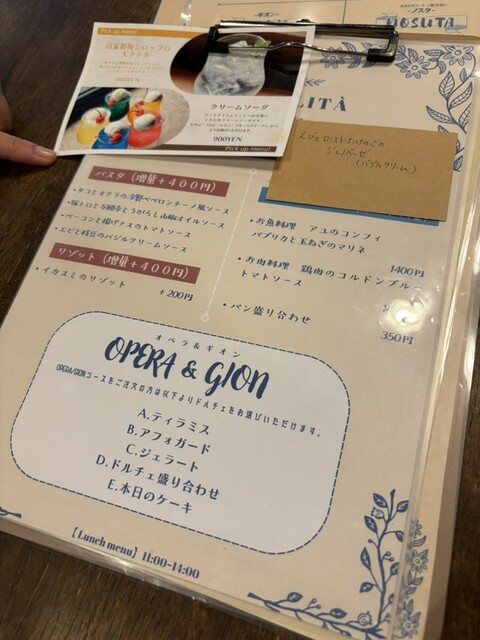 ーギオンー
ノスター
NOSUTA
Pick up menu!
自家製梅シロップの
モクテル
900YEN
クリームソーダ
900YEN
Pick up menu!
LITÀ
えびとローストたけのこの
ジェノベーゼ
(バジルクリーム)
パスタ (増量+400円)
・タコとオクラの冷製ペペロンチーノ風ソース
・豚トロと万願寺とうがらし山椒オイルソース
・ベーコンと揚げナスのトマトソース
・エビと枝豆のバジルクリームソース
リゾット (増量+400円)
・イカスミのリゾット +200円
・お魚料理 アユのコンフィ
パプリカと玉ねぎのマリネ
1400円
・お肉料理 鶏肉のコルドンブルー
トマトソース
・パン盛り合わせ
350円
オペラ&ギオン
OPERA & GION
OPERA/GIONコースをご注文の方は以下よりドルチェをお選びいただけます。
A.ティラミス
B.アフォガード
C.ジェラート
D.ドルチェ盛り合わせ
E.本日のケーキ
【Lunch menu】11:00-14:00